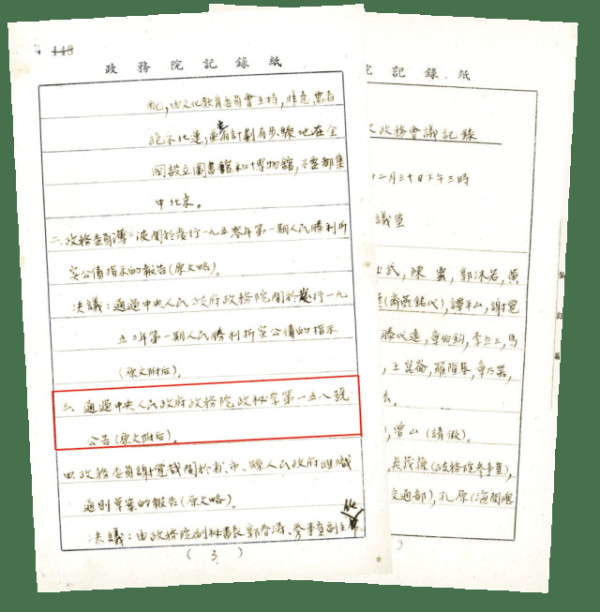 448
政務院記錄紙
配，由文化教育委員會主持，非急需者
說不北運，要有計劃有步驟地在全
國設立圖書館和博物館，不要都集
中北京。
二、政務委員薄一波關於發行一九五零年第一期人民勝利折
實公債指示的報告(原文略)。
決議：通過中央人民政府政務院關於發行一九
五〇年第一期人民勝利折實公債的指示
(原文附后)。
三、通過中央人民政府政務院政秘字第一五八號
公告(原文附后)。
四、政務委員謝覺哉關於省、市、縣人民政府組織
通則草案的報告(原文略)。
決議：由政務院副秘書長郭春濤、參事室副主
(3)
院記錄紙
政務會議記錄
十二月三十日下午三時
議室
武，陳雲，郭沫若，黃
(齊燕銘代)，譚平山，謝覺
滕代遠，章伯鈞，李立三，馬
，王崑崙，羅隆基，章乃器，
，曾山(請假)。
，吳茂蓀(政務院參事室)，
交通部)，孔原(海關總
)